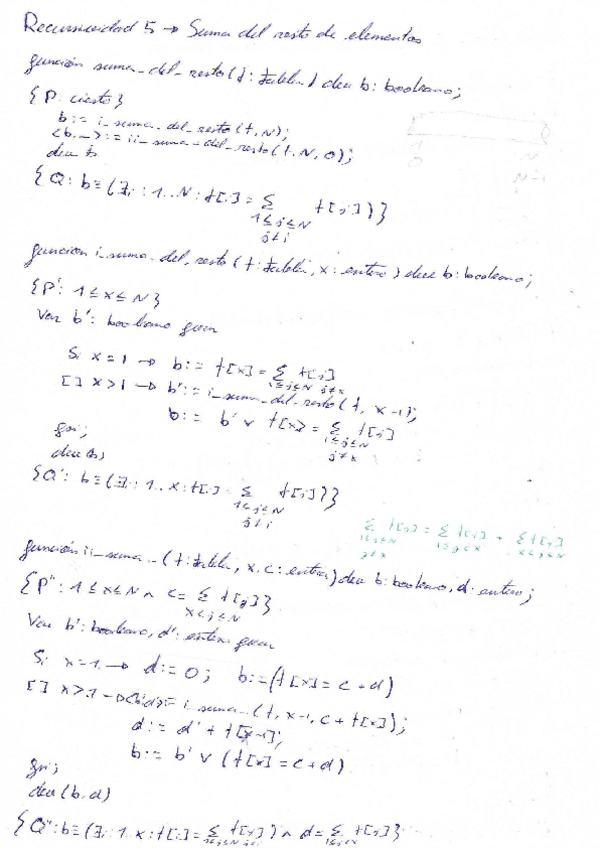 Recursividad 5 → Suma del resto de elementos
función suma_del_resto(t: tabla) dev b: booleano;
{P: cierto}
b:= i_suma_del_resto(t,N);
<b,_>:= ii_suma_del_resto(t,N,0);
dev b
{Q: b≡(∃i:1..N: t[i]= Σ t[j])}
1≤j≤N
j≠i
1 N
0 N-1
función i_suma_del_resto(t:tabla, x:entero) dev b:booleano;
{P': 1≤x≤N}
Var b': booleano
Si x=1 → b:= t[x]= Σ t[j]
1≤j≤N j≠x
[] x>1 → b':= i_suma_del_resto(t, x-1);
b:= b' ∨ t[x]= Σ t[j]
1≤j≤N
j≠x
fsi;
dev b;
{Q': b≡(∃i:1..x:t[i]= Σ t[j])}
1≤j≤N
j≠i
Σ t[j] = Σ t[j] + Σ t[j]
1≤j≤N 1≤j<x x<j≤N
j≠x
función ii_suma_(t:tabla, x,c:entero) dev b:booleano, d:entero;
{P'': 1≤x≤N ∧ c= Σ t[j]}
x<j≤N
Var b':booleano, d':entero
Si x=1 → d:=0; b:=(t[x]=c+d)
[] x>1 → <b',d'>:= i_suma_(t,x-1,c+t[x]);
d:= d'+t[x-1];
b:= b' ∨ (t[x]=c+d)
fsi;
dev (b,d)
{Q'':b≡(∃i:1..x:t[i]= Σ t[j]) ∧ d= Σ t[j]}
1≤j≤N j≠i 1≤j<x